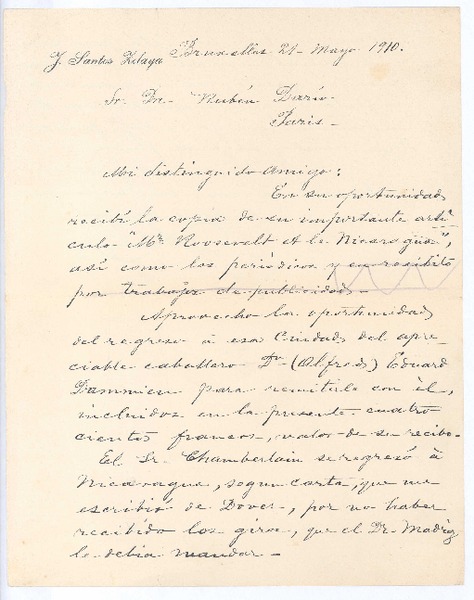 J. Santos Zelaya Bruxelles 21 - Mayo 1910.
Sr. Dr. Rubén Darío
Paris -
Mi distinguido amigo:
En su oportunidad
recibí la copia de su importante artí
culo "Mr. Roosevelt et le Nicaragua",
así como los periódicos y su recibito
por trabajos de publicidad -
Aprovecho la oportunidad
del regreso á esa Ciudad del apre-
ciable caballero Dn (Alfred) Eduard
para remitirle con él,
incluidos en la presente cuatro
cientos francos, valor de su recibo -
El Sr. Chamberlain se regresó á
Nicaragua, segun carta, que me
escribió de Dover, por no haber
recibido los giros, que el Dr. Madriz
le debia mandar -